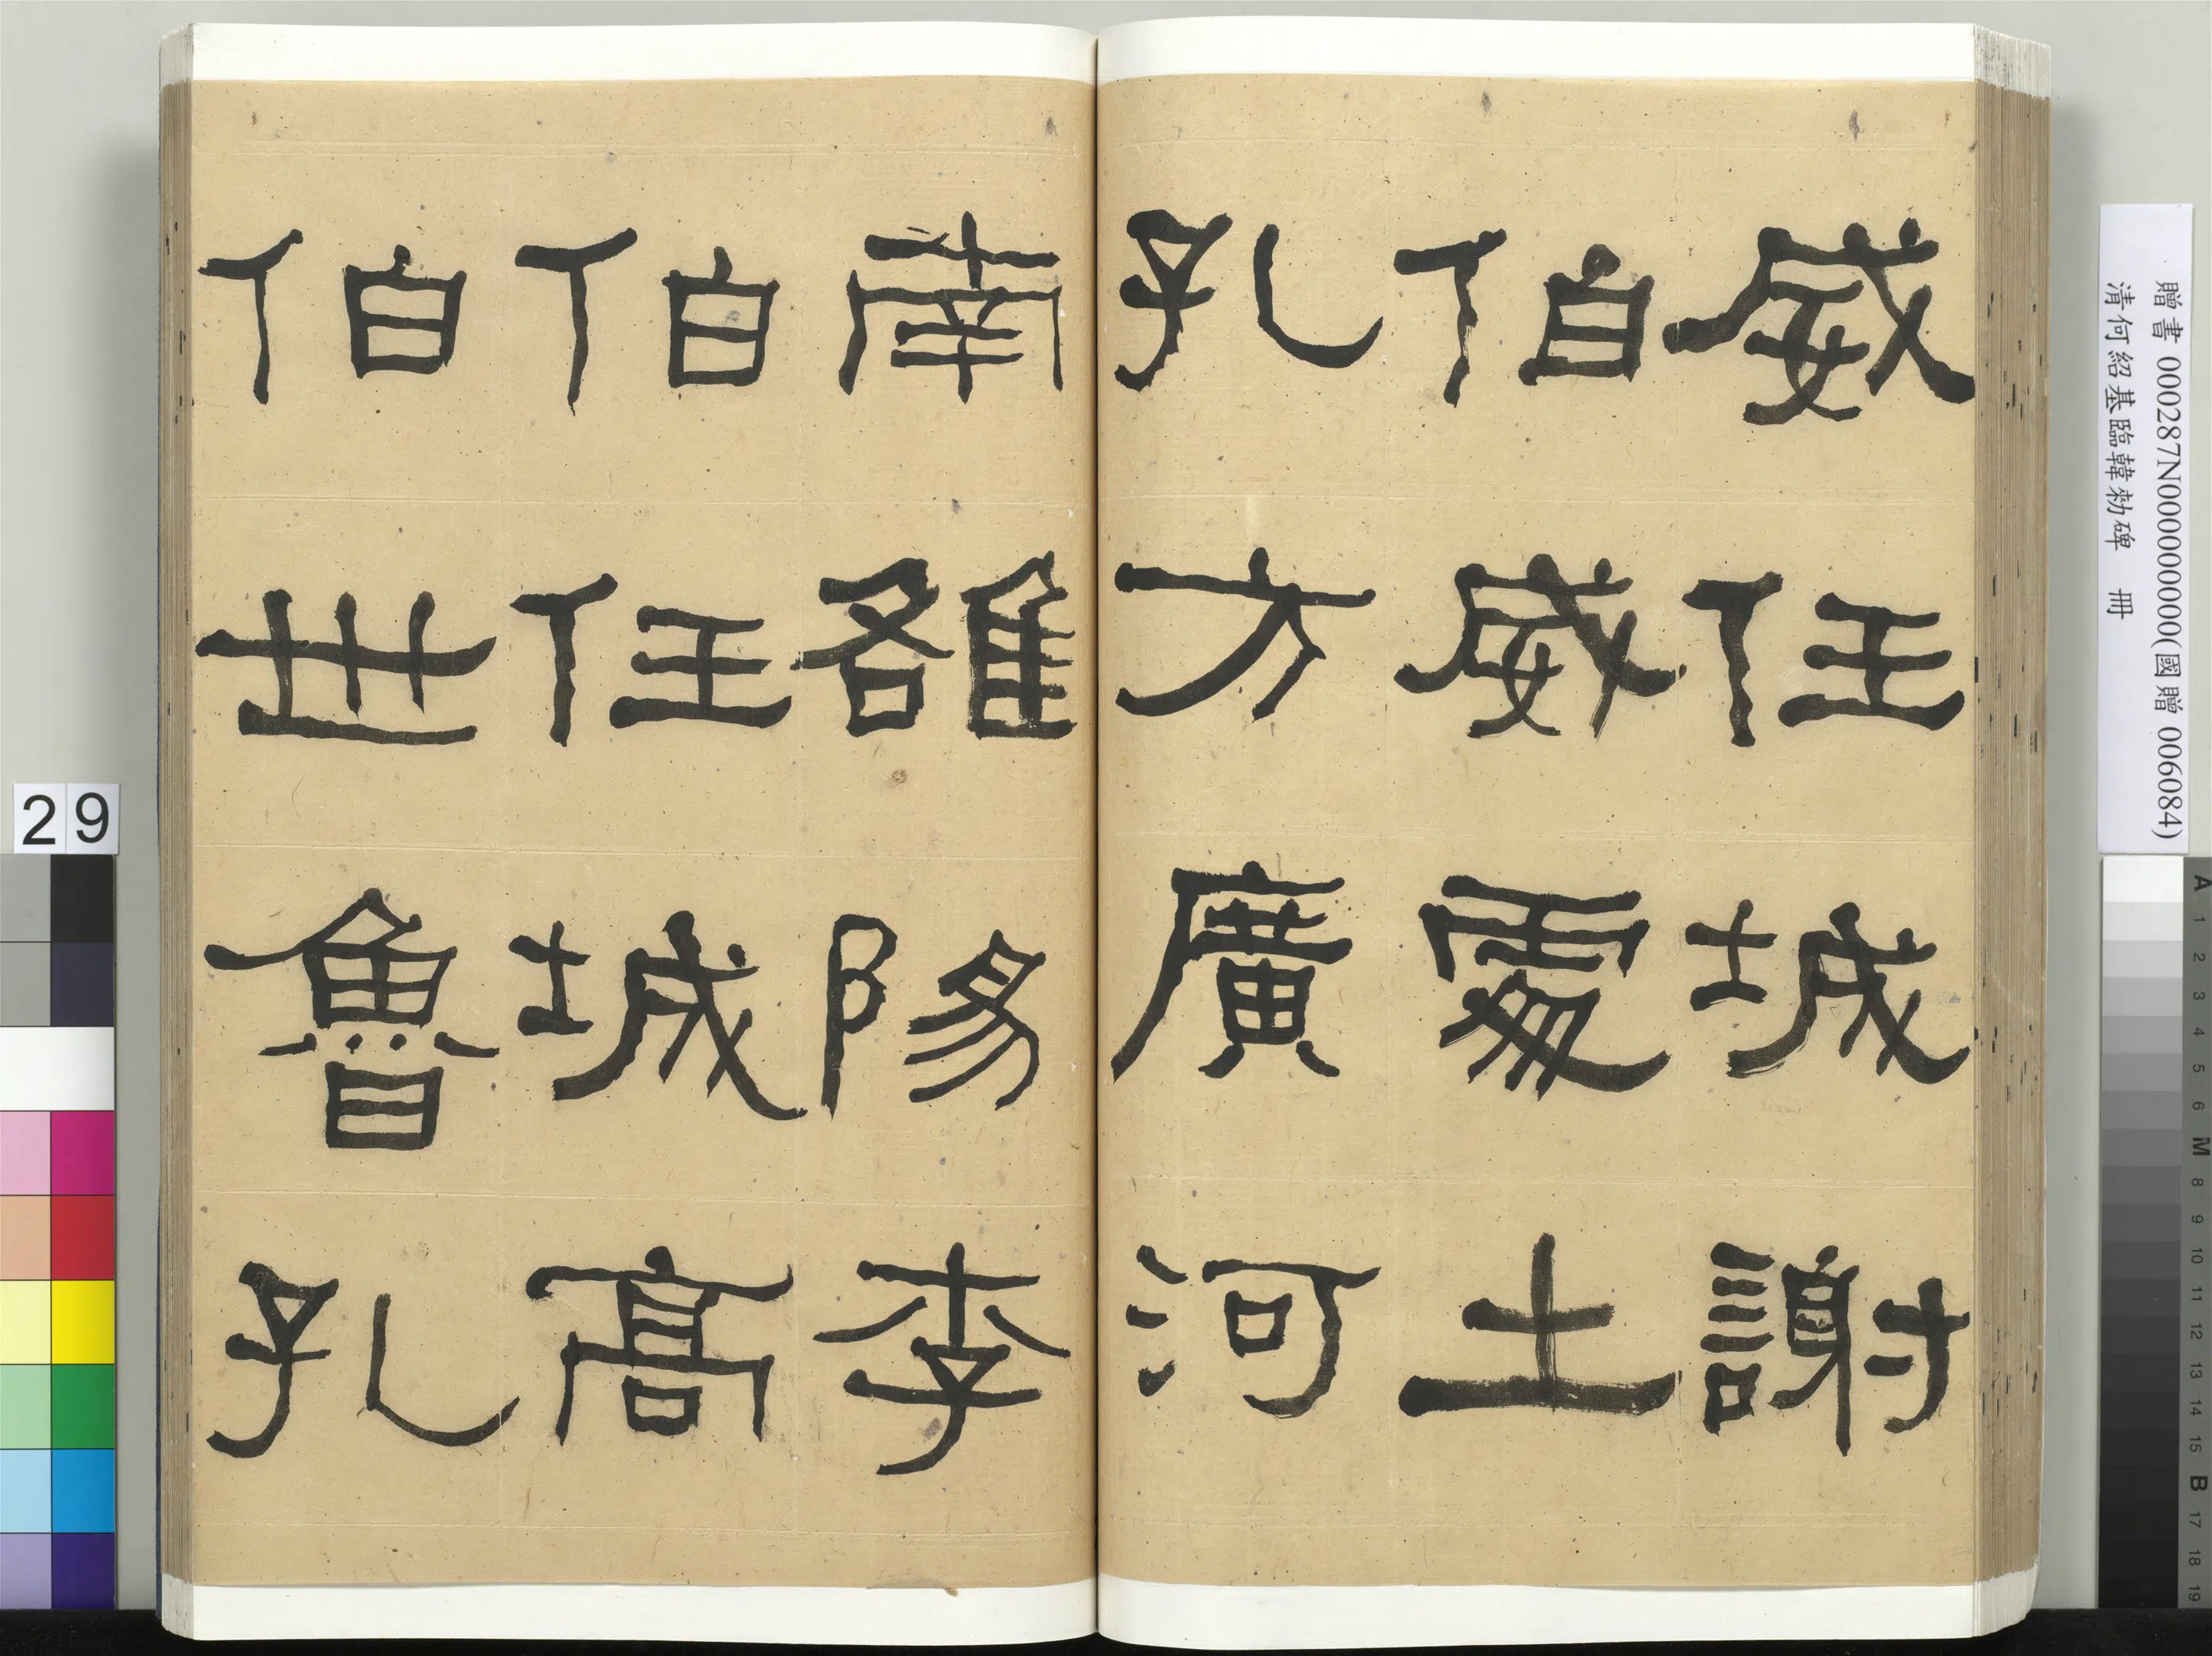 威任城謝
伯威處土
孔方廣河
南雒陽李
伯伯任城高
伯世魯孔
贈書 000287N000000000(國贈 006084)
清何紹基臨韓勑碑 冊
29
A 1 2 3 4 5 6 M 8 9 10 11 12 13 14 15 B 17 18 19